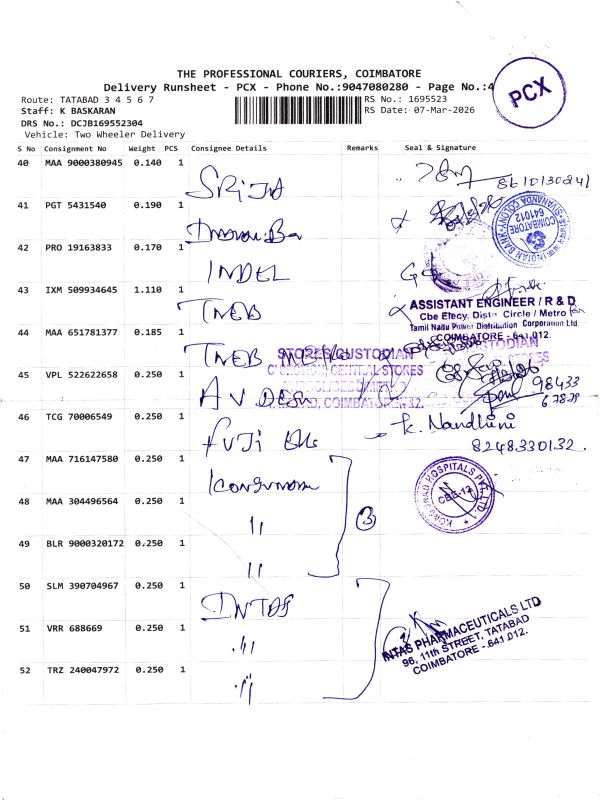 THE PROFESSIONAL COURIERS, COIMBATORE
Delivery Runsheet - PCX - Phone No.:9047080280 - Page No.:4
PCX
Route: TATABAD 3 4 5 6 7
RS No.: 1695523
Staff: K BASKARAN
RS Date: 07-Mar-2026
DRS No.: DCJB169552304
Vehicle: Two Wheeler Delivery
S No Consignment No Weight PCS Consignee Details Remarks Seal & Signature
40 MAA 9000380945 0.140 1
8610130241
41 PGT 5431540 0.190 1
INDIAN BANK SIVANANDA COLONY COIMBATORE 641012
42 PRO 19163833 0.170 1 INDEL
43 IXM 509934645 1.110 1 TNEB
ASSISTANT ENGINEER / R & D
Cbe Elecy. Distn Circle / Metro
Tamil Nadu Power Distribution Corporation Ltd.
COIMBATORE - 641 012.
44 MAA 651781377 0.185 1 TNEB
STORES CUSTODIAN
CENTRAL STORES
COIMBATORE
45 VPL 522622658 0.250 1
98433
46 TCG 70006549 0.250 1 FUJI
K. Nandhini
8248330132.
47 MAA 716147580 0.250 1
KONGUNAD HOSPITALS PVT. LTD. CBE-12
48 MAA 304496564 0.250 1 "
3
49 BLR 9000320172 0.250 1 "
50 SLM 390704967 0.250 1 INTAS
51 VRR 688669 0.250 1 "
INTAS PHARMACEUTICALS LTD
96, 11th STREET, TATABAD
COIMBATORE - 641 012.
52 TRZ 240047972 0.250 1 "